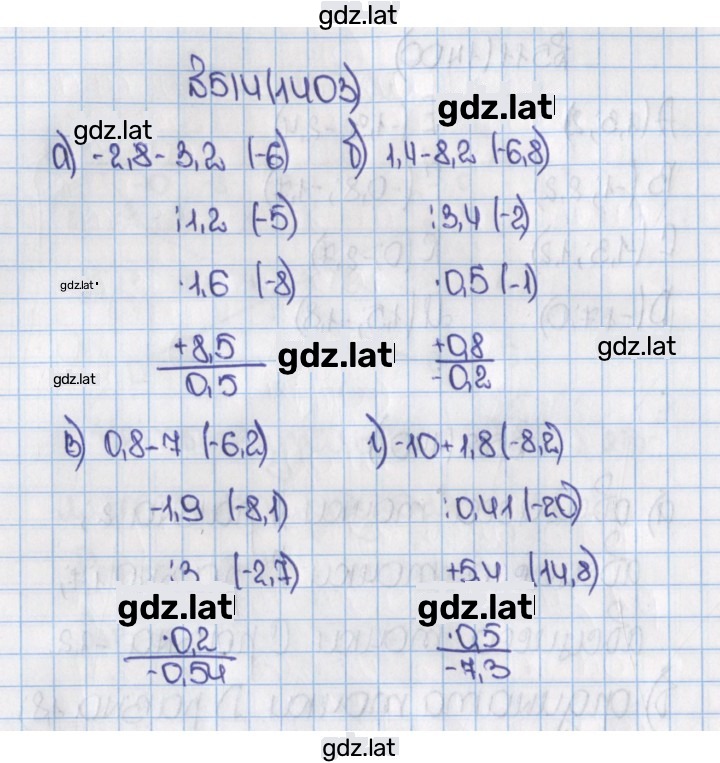 gdz.lat
В514(1403)
gdz.lat
gdz.lat
а) -2,8-3,2 (-6)
:1,2 (-5)
gdz.lat
·1,6 (-8)
+8,5
gdz.lat
gdz.lat
0,5
б) 1,4-8,2 (-6,8)
:3,4 (-2)
·0,5 (-1)
+0,8
gdz.lat
-0,2
в) 0,8-7 (-6,2)
-1,9 (-8,1)
:3 (-2,7)
gdz.lat
·0,2
-0,54
г) -10+1,8 (-8,2)
:0,41 (-20)
(14,8)
gdz.lat
·0,5
-7,3
gdz.lat